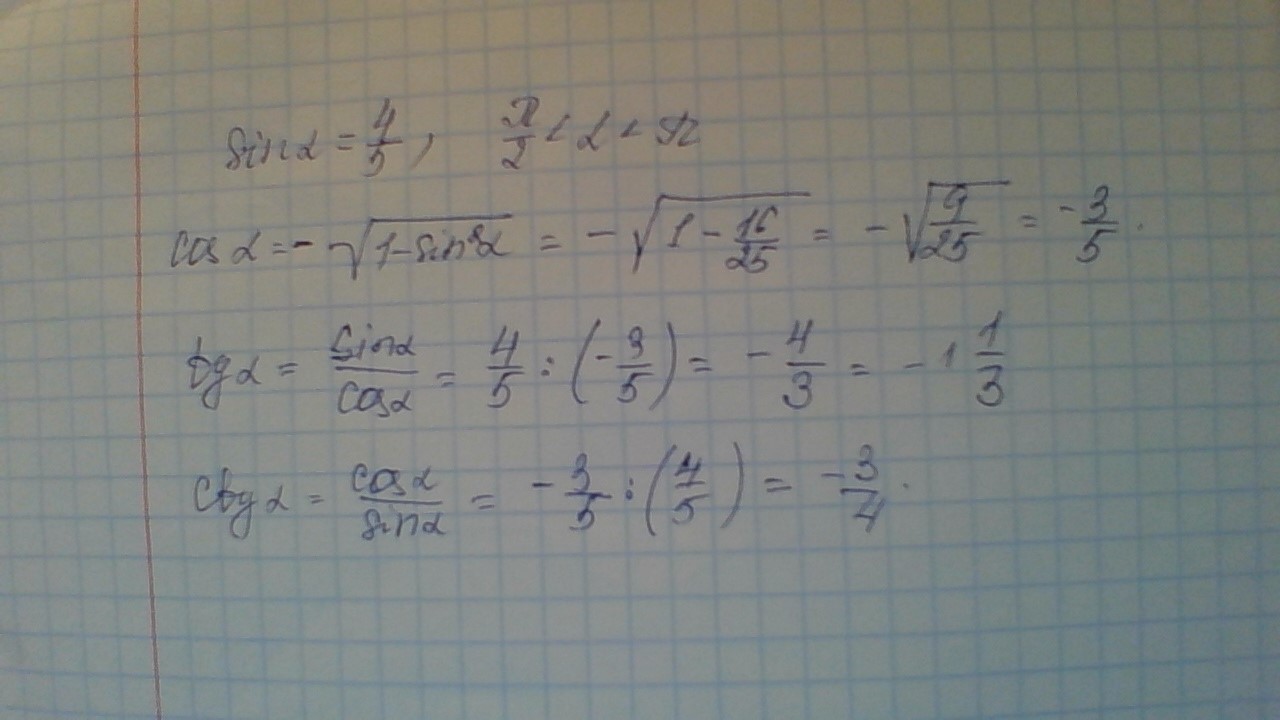 sin α = 4/5, π/2 < α < π
cos α = - √(1-sin²α) = - √(1 - 16/25) = - √(9/25) = -3/5.
tg α = sin α/cos α = 4/5 : (-3/5) = - 4/3 = - 1 1/3
ctg α = cos α/sin α = - 3/5 : (4/5) = -3/4.